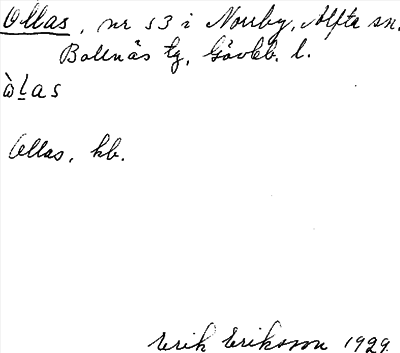 Ollas, nr 53 i Norrby, Alfta sn.
Bollnäs tg, Gävleb. l.
òlas
Ollas, kb.
Erik Eriksson 1929